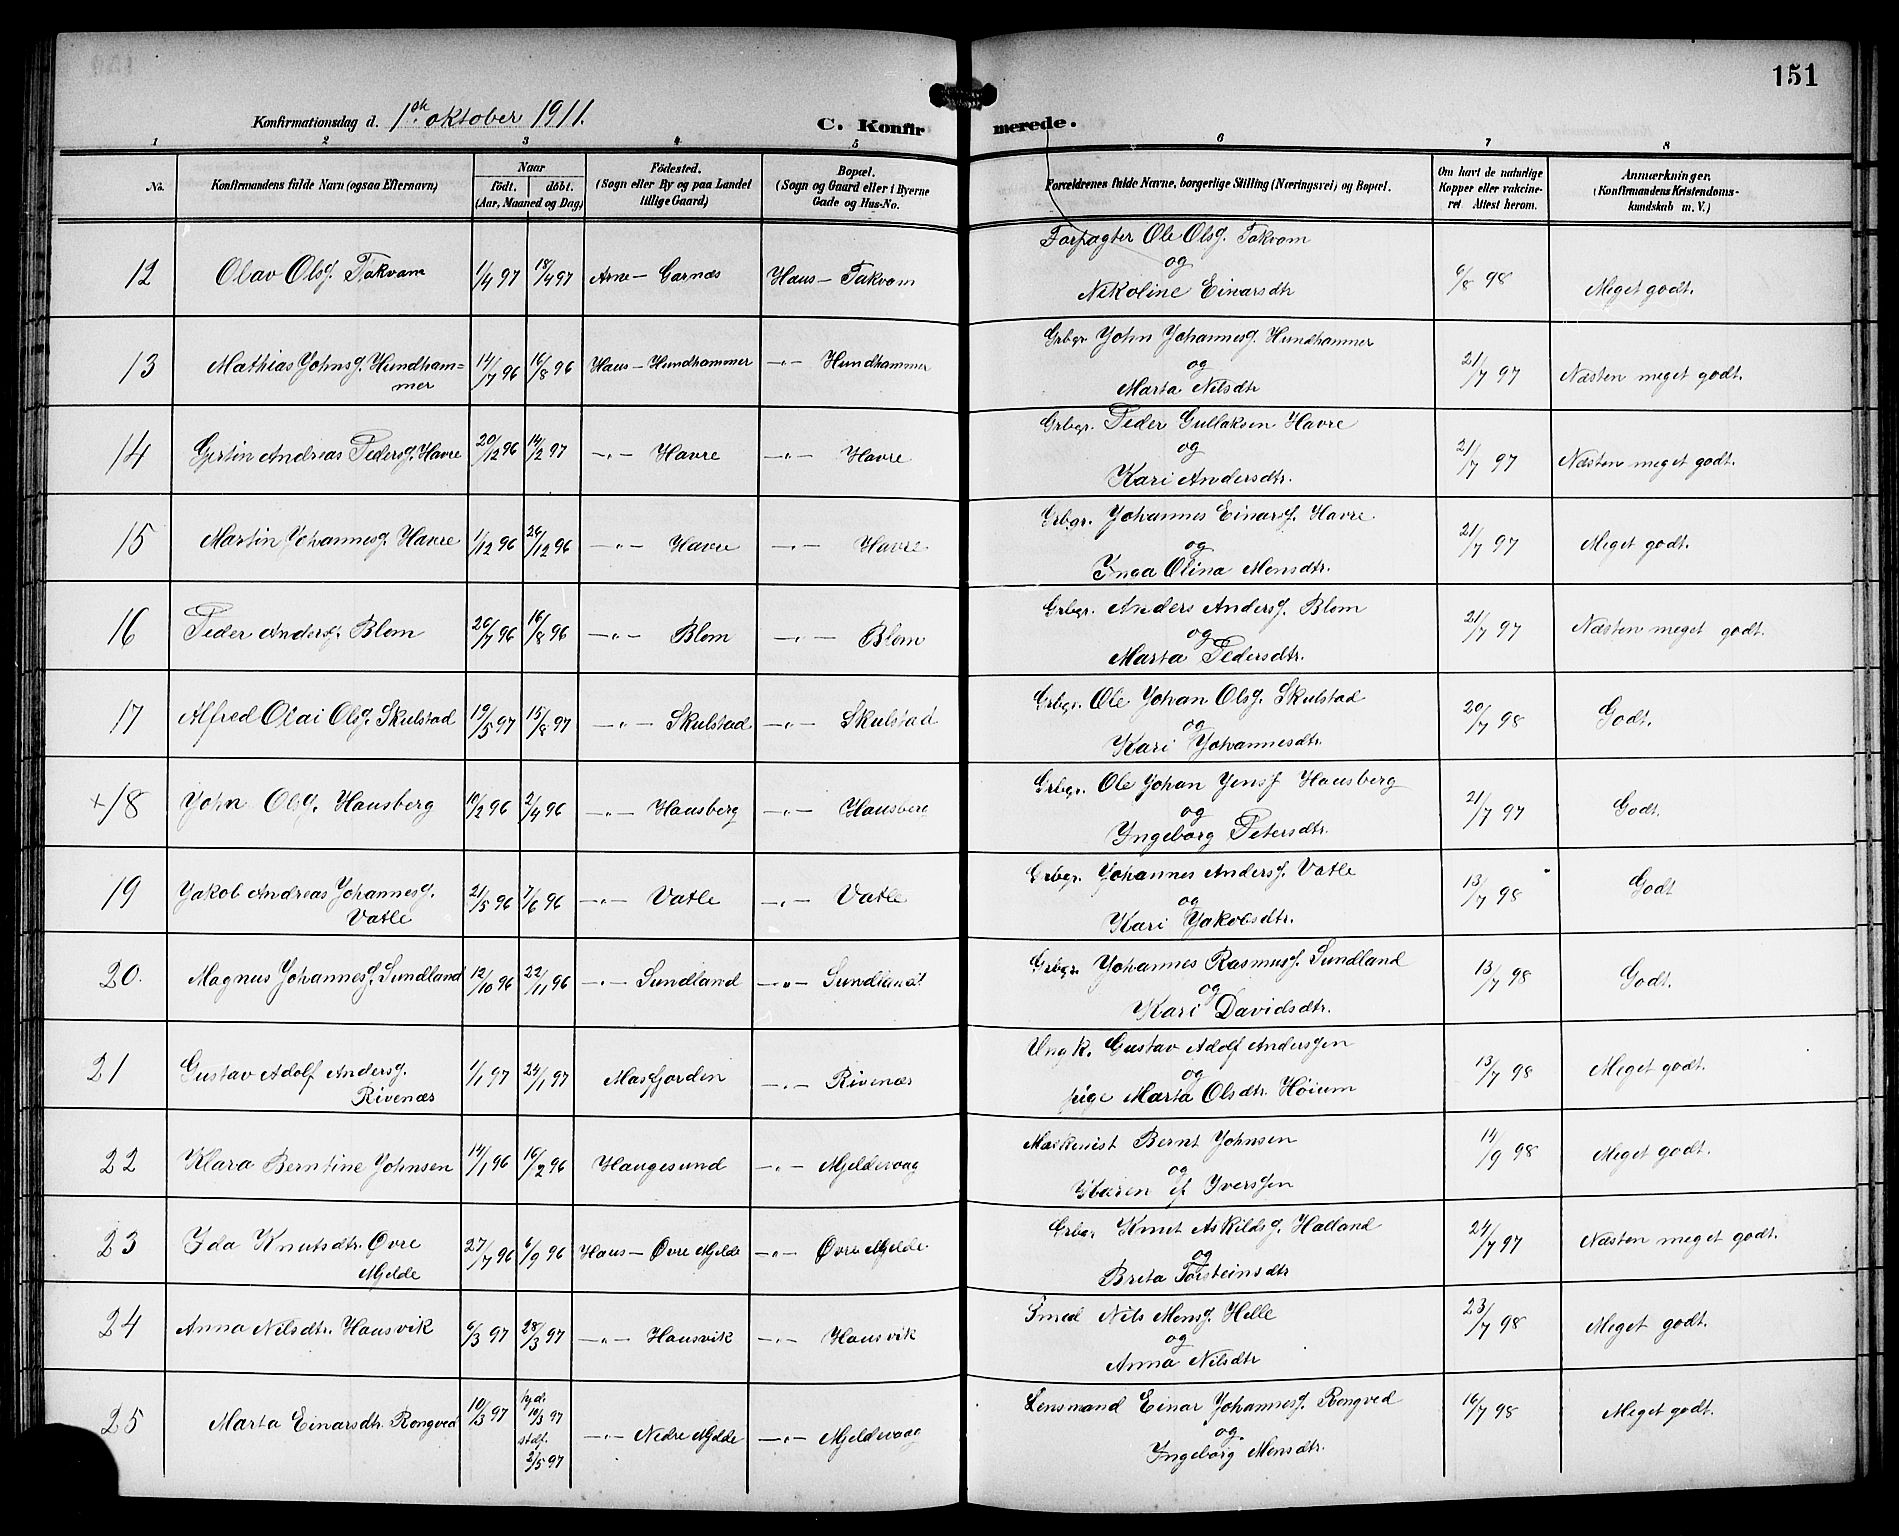 151
Konfirmationsdag d. 1ste oktober 1911.
C. Konfirmerede.
1 2 3 4 5 6 7 8
No. | Konfirmandens fulde Navn (ogsaa Efternavn) | Naar født. døbt. (Aar, Maaned og Dag) | Fødested. (Sogn eller By og paa Landet tillige Gaard) | Bopæl. (Sogn og Gaard eller i Byerne Gade og Hus-No. | Forældrenes fulde Navne, borgerlige Stilling (Næringsvei) og Bopæl. | Om havt de naturlige Kopper eller vakcineret Attest herom. | Anmærkninger. (Konfirmandens Kristendomskundskab m. V.)
12 Olav Olsg. Takvam 1/4 97 18/4 97 Arne — Garnæs Haus — Takvam Forpagter Ole Olsg. Takvam
og
Nikoline Einarsdtr 6/8 98 Meget godt.
13 Mathias Yohnsg. Hundham=
mer 14/7 96 16/8 96 Haus — Hundhammer —„— Hundhammer Grbgr. Yohn Yohannesg. Hundhammer
og
Marta Nilsdtr 21/7 97 Næsten meget godt.
14 Gjertin Andreas Pedersg. Havre 20/12 96 14/2 97 —„— Havre —„— Havre Grbgr. Peder Gullaksen Havre
og
Kari Andersdtr. 21/7 97 Næsten meget godt.
15 Martin Yohannesg. Havre 1/12 96 26/12 96 —„— Havre —„— Havre Grbgr. Yohannes Einarsg. Havre
og
Inga Olina Monsdtr. 21/7 97 Meget godt.
16 Peder Andersg. Blom 26/7 96 16/8 96 —„— Blom —„— Blom Grbgr. Anders Andersg. Blom
og
Marta Pedersdtr. 21/7 97 Næsten meget godt.
17 Alfred Olai Olsg. Skulstad 19/5 97 15/8 97 —„— Skulstad —„— Skulstad Grbgr. Ole Yohan Olsg. Skulstad
og
Kari Yohannesdtr. 20/7 98 Godt.
+18 Yohn Olsg. Hausberg 10/2 96 2/4 96 —„— Hausberg —„— Hausberg Grbgr. Ole Yohan Yensg Hausberg
og
Yngeborg Petersdtr. 21/7 97 Godt.
19 Yakob Andreas Yohannesg.
Vatle 21/5 96 7/6 96 —„— Vatle —„— Vatle Grbgr. Yohannes Andersg. Vatle
og
Kari Yakobsdtr. 13/7 98 Godt
20. Magnus Yohannesg. Sundland 12/10 96 22/11 96 —„— Sundland —„— Sundland Grbgr. Yohannes Rasmusg. Sundland
og
Kari Davidsdtr. 13/7 98 Godt.
21 Gustav Adolf Andersg.
Rivenæs 1/1 97 24/1 97 Masfjorden —„— Rivenæs Ungk. Gustav Adolf Anderssen
og
pige Marta Olsdtr. Høium 13/7 98 Meget godt.
22 Klara Berntine Yohnsen 14/1 96 16/2 96 Haugesund —„— Mjeldevaag Maskinist Bernt Yohnsen
og
Karen Iverssen 14/9 98 Meget godt.
23 Yda Knutsdtr. Øvre
Mjelde 27/7 96 6/9 96 Haus — Øvre Mjelde —„— Øvre Mjelde Grbgr Knut Askildsg. Halland
og
Brita Torsteinsdtr 24/7 97 Næsten meget godt.
24 Anna Nilsdtr. Hausvik 6/3 97 28/3 97 —„— Hausvik —„— Hausvik Smed Nils Monsg. Helle
og
Anna Nilsdtr 23/7 98 Meget godt.
25 Marta Einarsdtr. Rongved 10/3 97 hjd. 10/3 97
stdf. 2/5 97 —„— Nedre Mjelde —„— Mjeldevaag Lensmand Einar Yohannesg. Rongved
og
Yngeborg Monsdtr. 16/7 98 Meget godt.